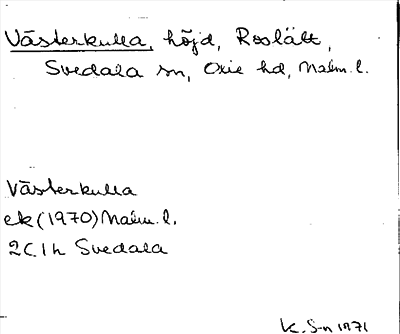 Västerkulla, höjd, Roslätt,
Svedala sn, Oxie hd, Malm. l.
Västerkulla
ek (1970) Malm. l.
2C.1h Svedala
K. S-n 1971